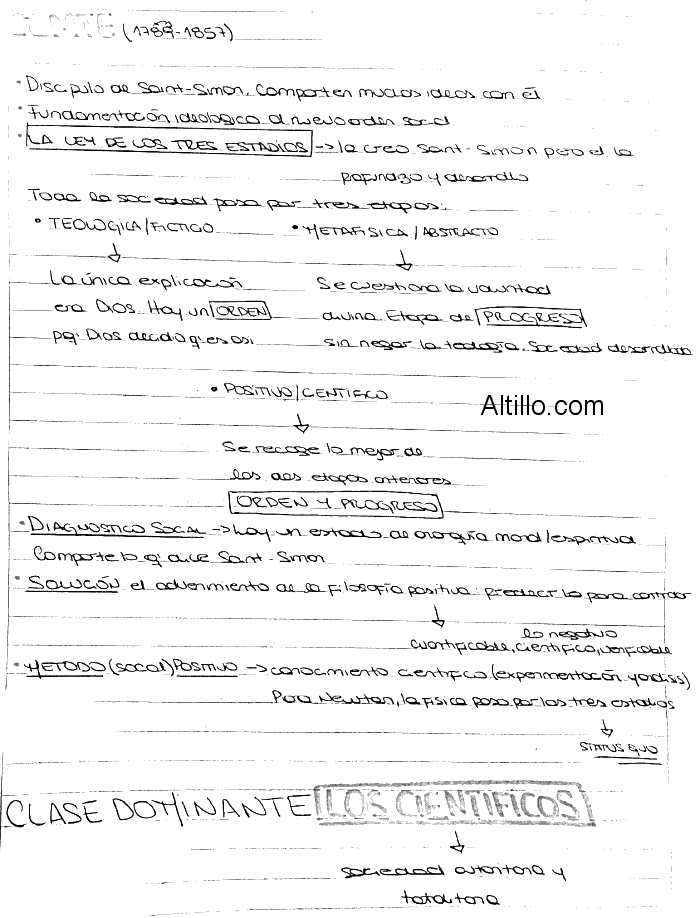 COMTE (1789-1857)
• Discipulo de Saint-Simon. Comparten muchas ideas con él
• Fundamentación ideologica al nuevo orden social
• LA LEY DE LOS TRES ESTADIOS -> la creo Saint-Simon pero el la
profundizo y desarrollo
Toda la sociedad pasa por tres etapas:
• TEOLOGICA/FICTICIO • METAFISICA/ABSTRACTO
La única explicación Se cuestiona la voluntad
era Dios. Hay un ORDEN divina Etapa de PROGRESO
pq' Dios decidio q' es asi sin negar la teologia. Sociedad desarrollada
• POSITIVO/CIENTIFICO
Altillo.com
Se recoge lo mejor de
las dos etapas anteriores
ORDEN Y PROGRESO
• DIAGNOSTICO SOCIAL -> hay un estado de anarquía moral/espiritual
Comparte lo q' dice Saint-Simon
• SOLUCIÓN el advenimiento de la filosofía positiva: predecir la para controlar
lo negativo
cuantificable, científico, verificable
• METODO (social) POSITIVO -> conocimiento cientifico (experimentación y analisis)
Para Newton, la fisica paso por los tres estadios
STATUS QUO
CLASE DOMINANTE LOS CIENTIFICOS
sociedad autoritaria y
totalitaria